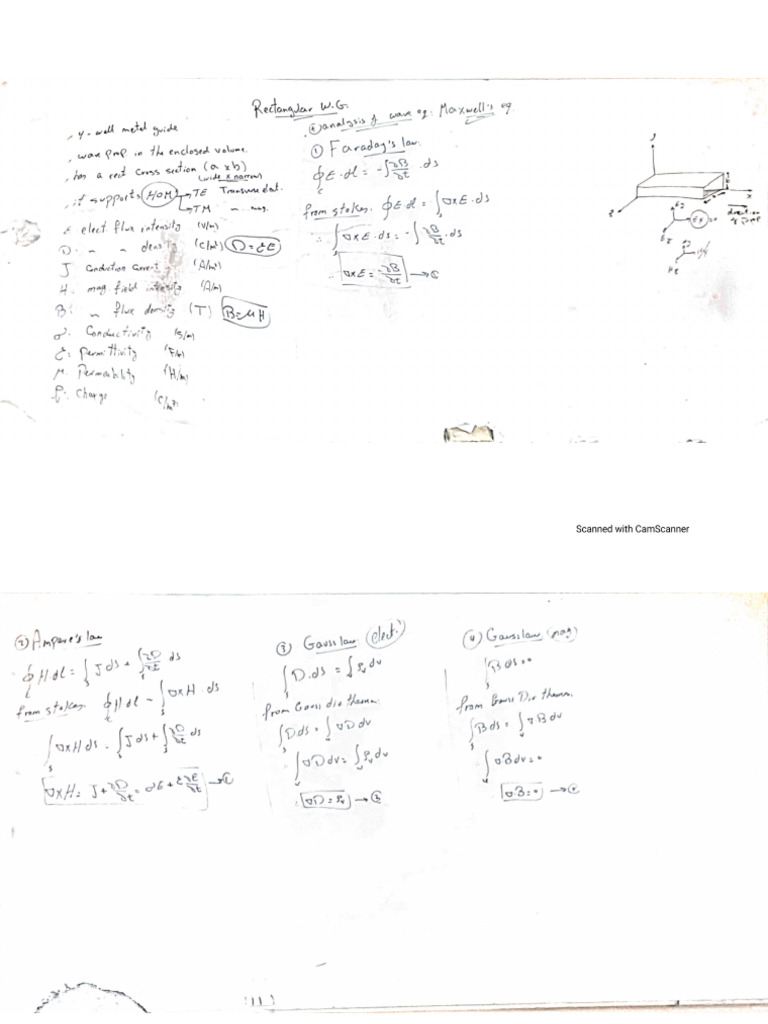 Rectangular W.G.
, 4-wall metal guide
, wave prop in the enclosed volume.
, has a rect cross section (a x b)
(wide x narrow)
, it supports HOM → TE Transverse elect.
→ TM " mag.
E elect. flux intensity (V/m)
D: " " density (C/m²) D = εE
J Conduction Current (A/m²)
H. mag. field intensity (A/m)
B: " flux density (T) B = μH
σ. Conductivity (S/m)
ε: permittivity (F/m)
μ. Permeability (H/m)
ρ: Charge (C/m³)
analysis of wave eq. Maxwell's eq.
① Faraday's law.
∮E.dl = -∫∂B/∂t .ds
from stokes. ∮E dl = ∫∇xE.ds
∴ ∫∇xE.ds = -∫∂B/∂t .ds
∴ ∇xE = -∂B/∂t → ①
y
z
x
direction of prop
Scanned with CamScanner
② Ampere's law
∮H dl = ∫J ds + ∫∂D/∂t ds
from stokes. ∮H dl = ∫∇xH .ds
∫∇xH ds = ∫J ds + ∫∂D/∂t ds
∇xH = J + ∂D/∂t = σE + ε∂E/∂t → ②
③ Gauss law (elect.)
∫D.ds = ∫ρv dv
from Gauss div theorem
∫D ds = ∫∇D dv
∫∇D dv = ∫ρv dv
∇D = ρv → ③
④ Gauss law (mag)
∫B ds = 0
from Gauss Div theorem.
∫B ds = ∫∇B dv
∫∇B dv = 0
∇.B = 0 → ④